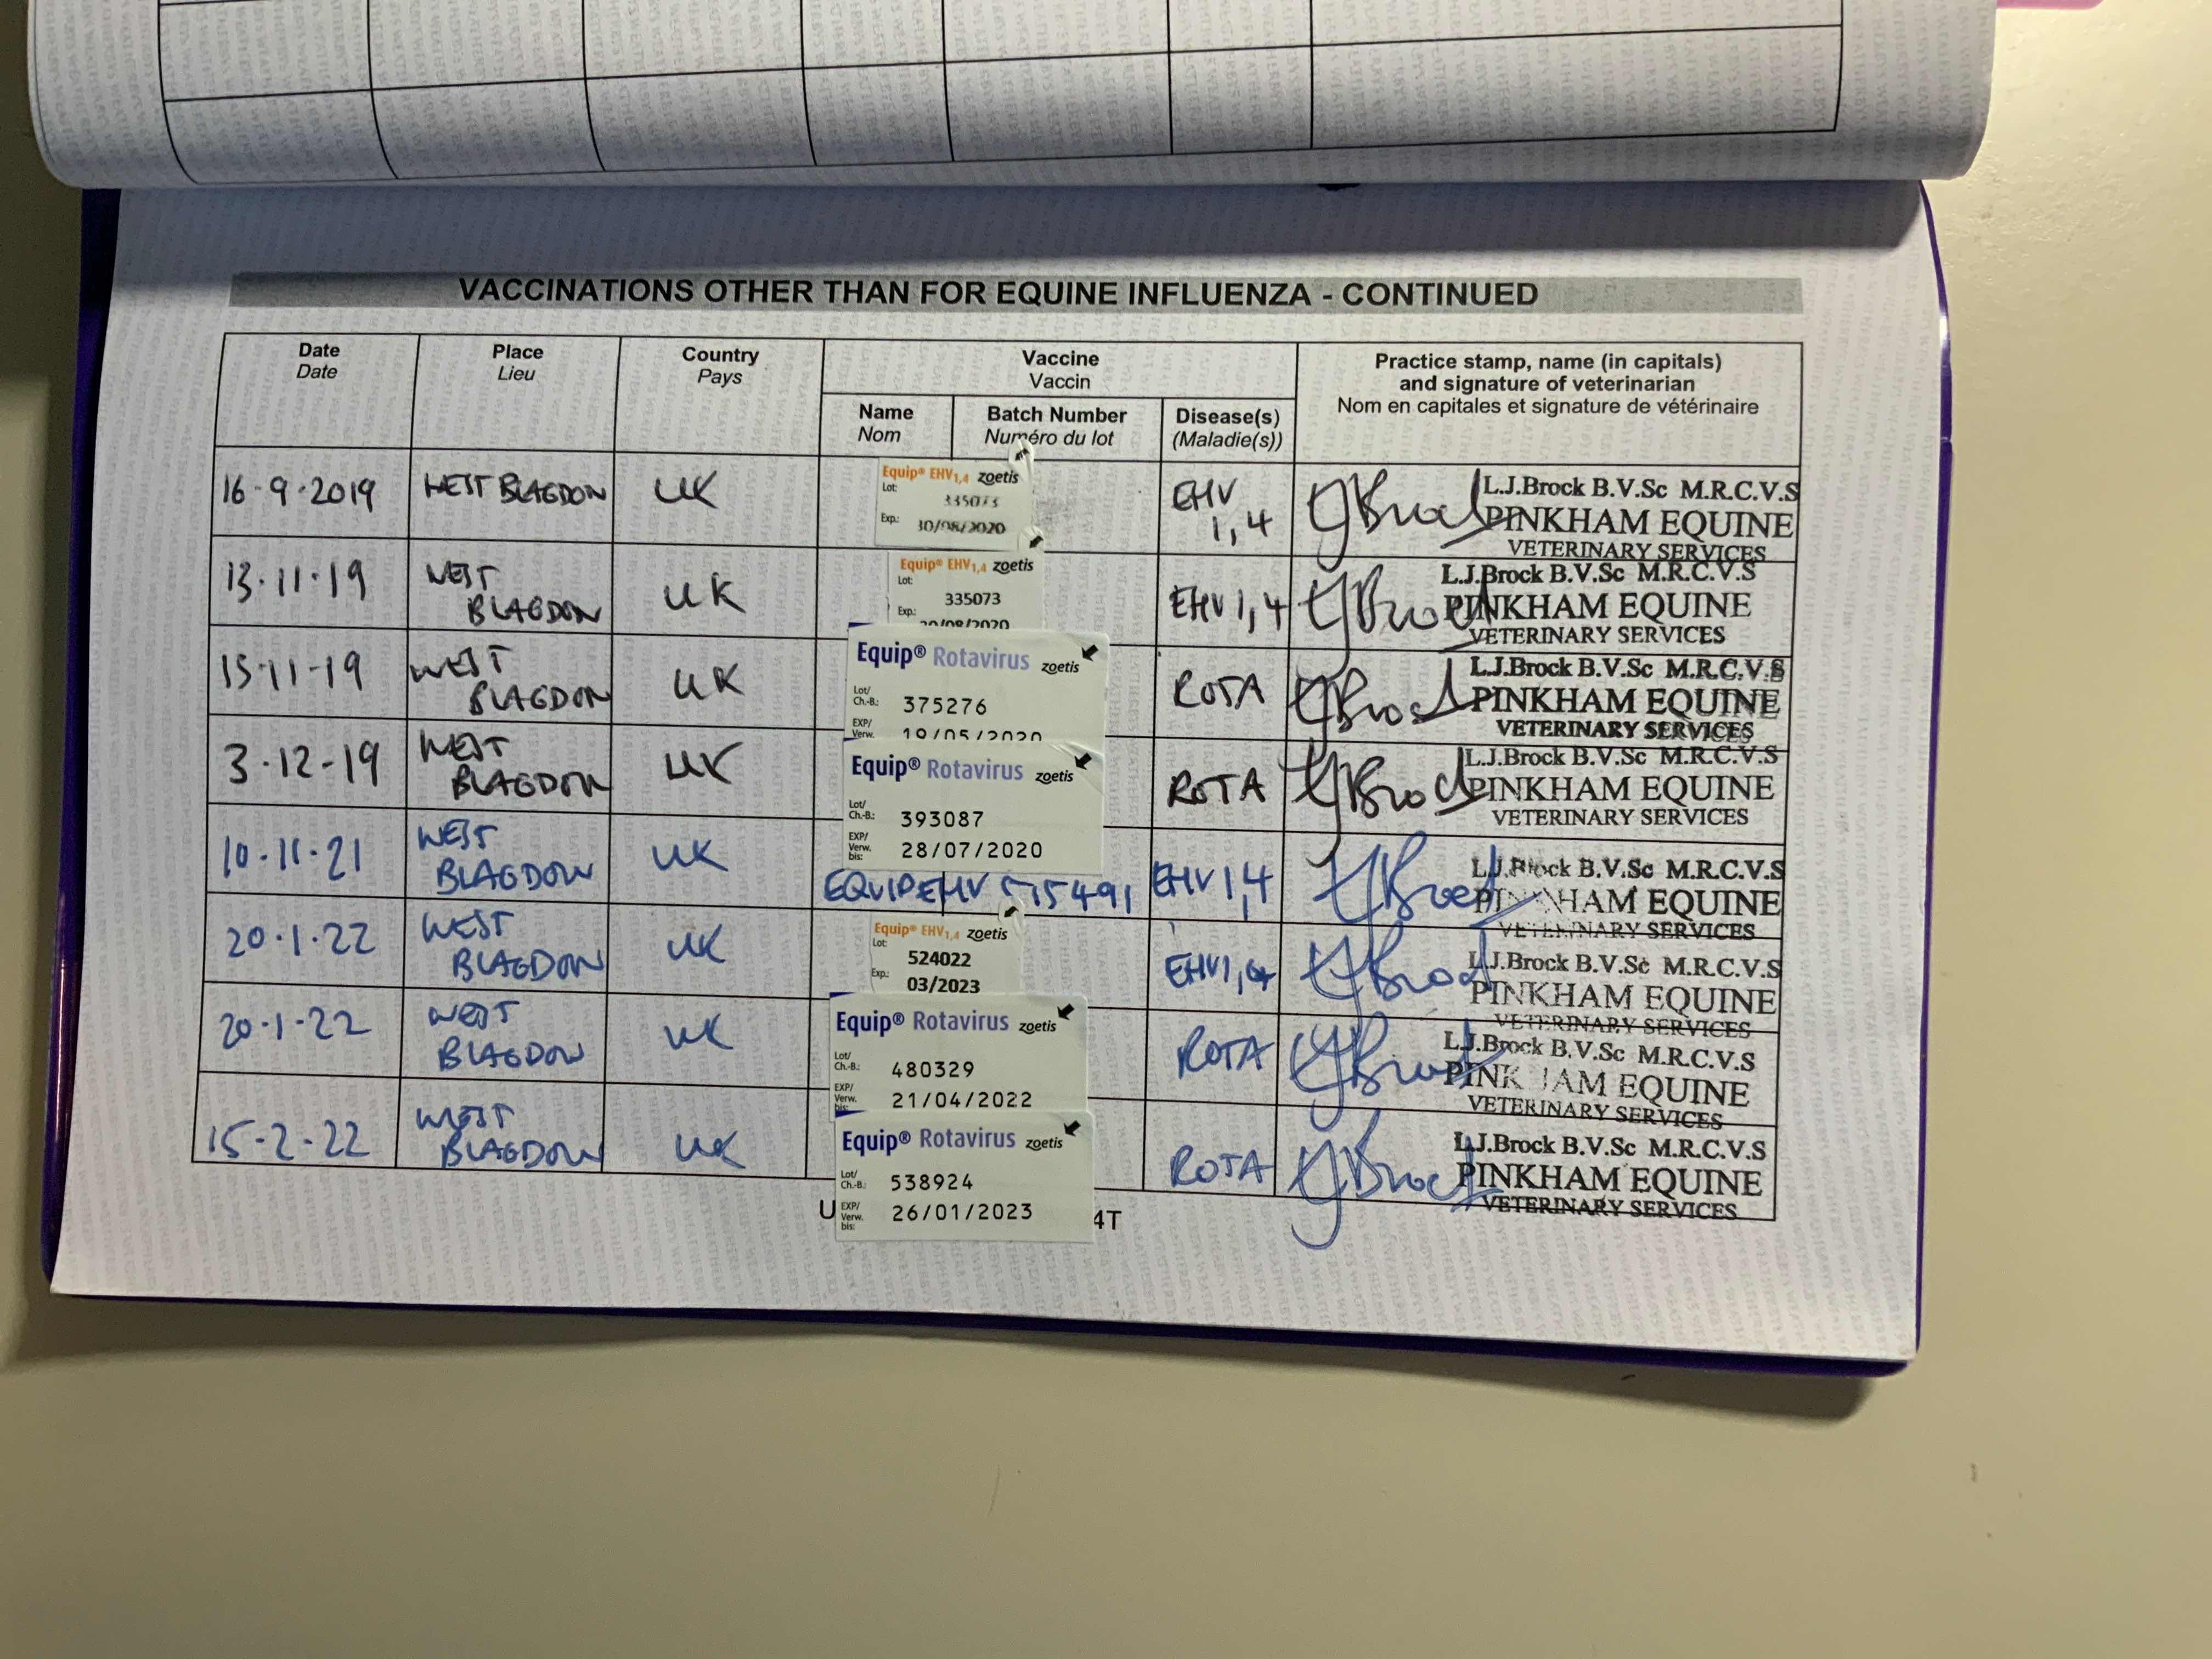 VACCINATIONS OTHER THAN FOR EQUINE INFLUENZA - CONTINUED
Date
Date
Place
Lieu
Country
Pays
Vaccine
Vaccin
Name
Nom
Batch Number
Numéro du lot
Disease(s)
(Maladie(s))
Practice stamp, name (in capitals)
and signature of veterinarian
Nom en capitales et signature de vétérinaire
16-9-2019
WEST BLAGDON
UK
Equip® EHV1,4 zoetis
Lot:
335073
Exp.: 30/08/2020
EHV
1,4
L.J.Brock B.V.Sc M.R.C.V.S
PINKHAM EQUINE
VETERINARY SERVICES
13-11-19
WEST
BLAGDON
UK
Equip® EHV1,4 zoetis
Lot:
335073
Exp.: 30/08/2020
EHV 1,4
L.J.Brock B.V.Sc M.R.C.V.S
PINKHAM EQUINE
VETERINARY SERVICES
15-11-19
WEST
BLAGDON
UK
Equip® Rotavirus zoetis
Lot/
Ch.-B.: 375276
EXP/
Verw. 19/05/2020
ROTA
L.J.Brock B.V.Sc M.R.C.V.S
PINKHAM EQUINE
VETERINARY SERVICES
3-12-19
WEST
BLAGDON
UK
Equip® Rotavirus zoetis
Lot/
Ch.-B.: 393087
EXP/
Verw.
bis: 28/07/2020
ROTA
L.J.Brock B.V.Sc M.R.C.V.S
PINKHAM EQUINE
VETERINARY SERVICES
10-11-21
WEST
BLAGDON
UK
EQUIP EHV 515491
EHV 1,4
L.J.Brock B.V.Sc M.R.C.V.S
PINKHAM EQUINE
VETERINARY SERVICES
20-1-22
WEST
BLAGDON
UK
Equip® EHV1,4 zoetis
Lot:
524022
Exp.: 03/2023
EHV1,4
L.J.Brock B.V.Sc M.R.C.V.S
PINKHAM EQUINE
VETERINARY SERVICES
20-1-22
WEST
BLAGDON
UK
Equip® Rotavirus zoetis
Lot/
Ch.-B.: 480329
EXP/
Verw.
bis: 21/04/2022
ROTA
L.J.Brock B.V.Sc M.R.C.V.S
PINKHAM EQUINE
VETERINARY SERVICES
15-2-22
WEST
BLAGDON
UK
Equip® Rotavirus zoetis
Lot/
Ch.-B.: 538924
EXP/
Verw.
bis: 26/01/2023
ROTA
L.J.Brock B.V.Sc M.R.C.V.S
PINKHAM EQUINE
VETERINARY SERVICES
U 4T